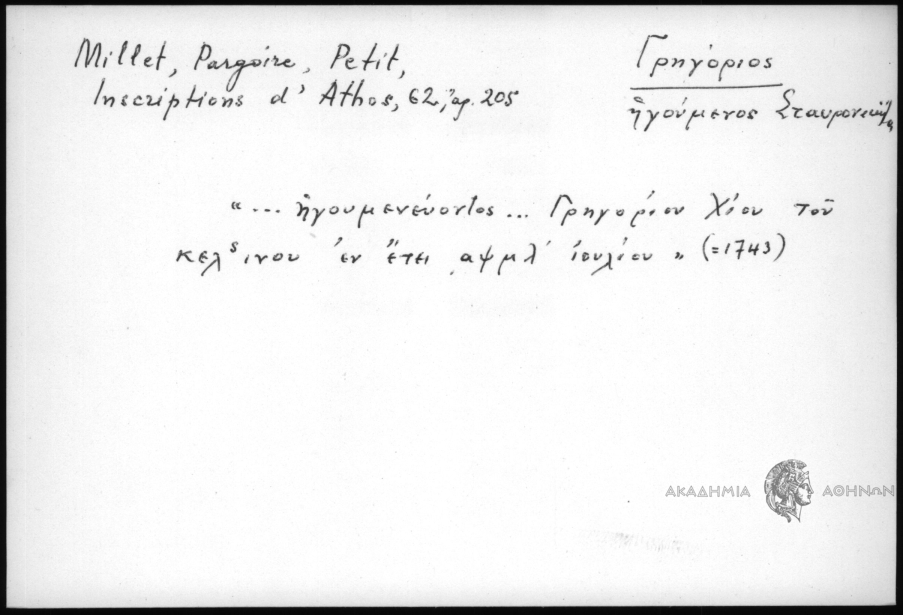 Millet, Pargoire, Petit,
Inscriptions d' Athos, 62, ἀρ. 205
Γρηγόριος
ἡγούμενος
"... ἡγουμενεύοντος ... Γρηγορίου Χίου τοῦ
κελˢινου ἐν ἔτει ͵αψμγ́ ἰουλίου" (=1743)
ΑΚΑΔΗΜΙΑ ΑΘΗΝΩΝ